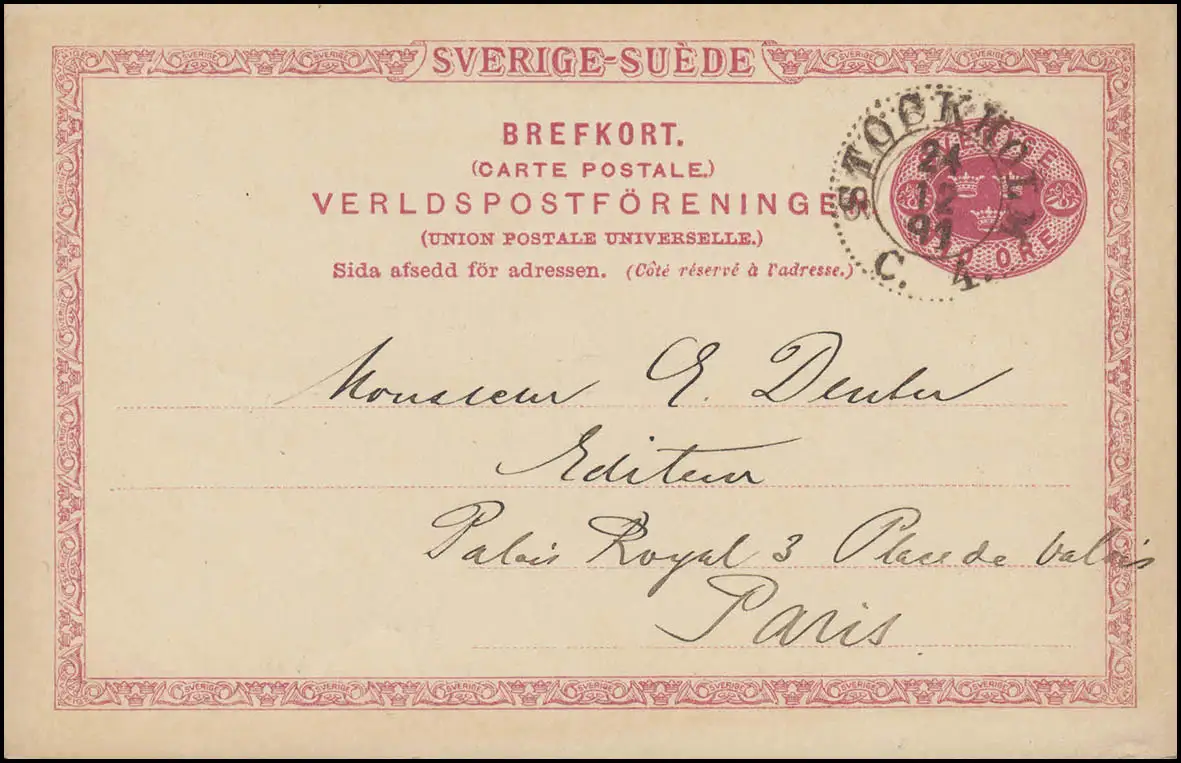 SVERIGE-SUÈDE
BREFKORT.
(CARTE POSTALE.)
VERLDSPOSTFÖRENINGE
(UNION POSTALE UNIVERSELLE.)
Sida afsedd för adressen. (Côté réservé à l'adresse.)
STOCKHOLM
24
12
91
C. K.
SVERIGE
10 ORE
Monsieur E. Dentu
Editeur
Palais Royal 3 Place de Valois
Paris